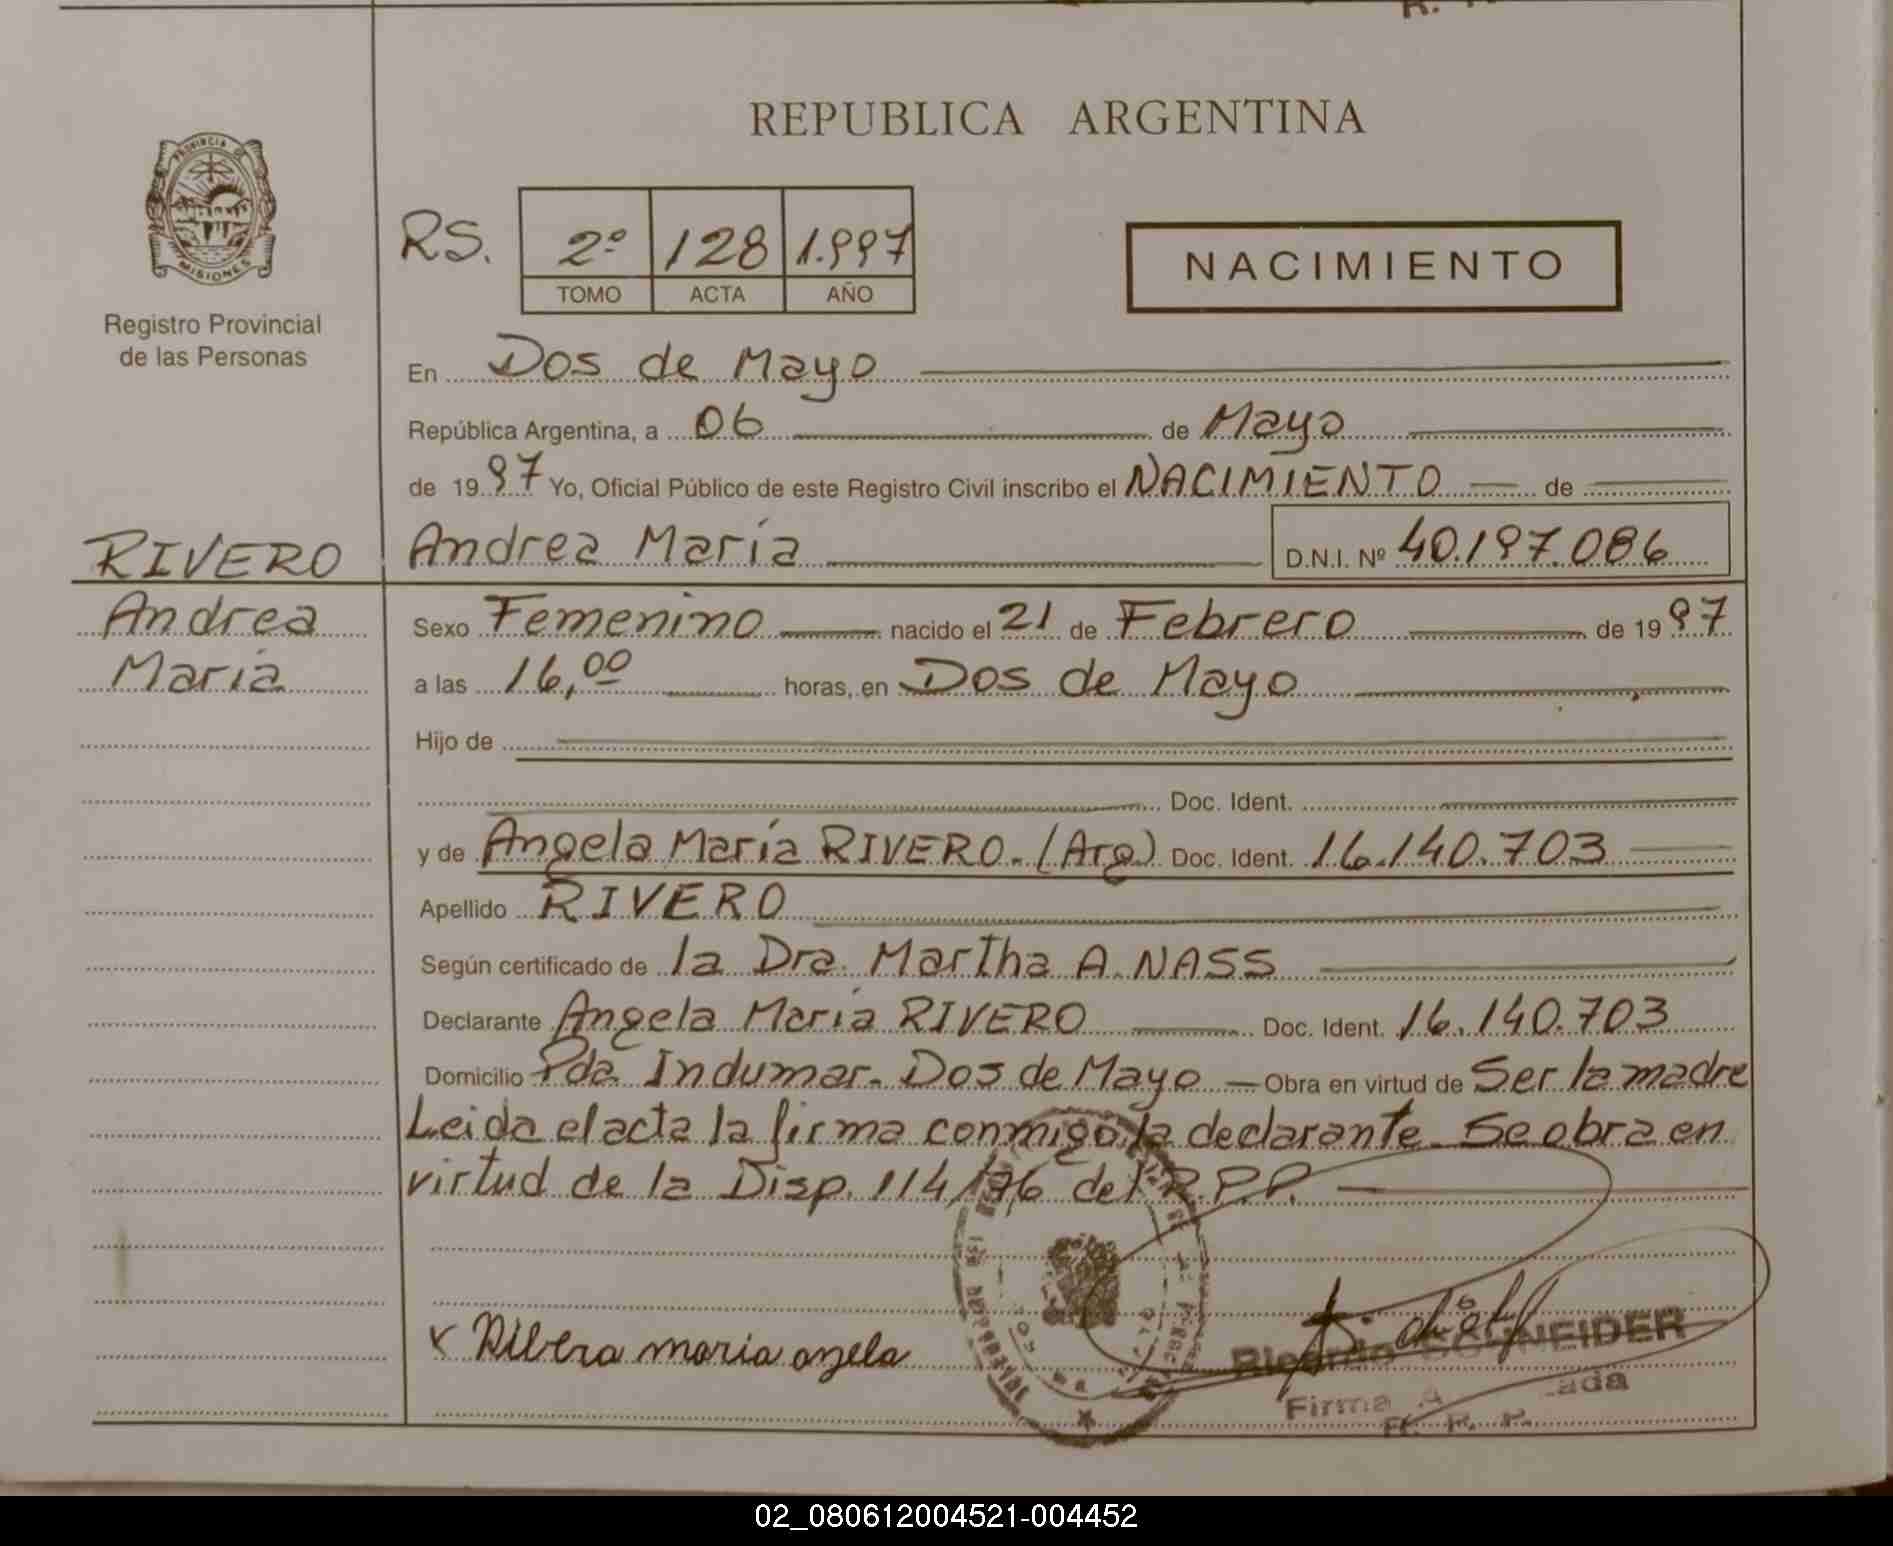 REPUBLICA ARGENTINA
PROVINCIA DE
MISIONES
Registro Provincial
de las Personas
RS. 2º 128 1.997
TOMO ACTA AÑO
NACIMIENTO
En Dos de Mayo
República Argentina, a 06 de Mayo
de 1997 Yo, Oficial Público de este Registro Civil inscribo el NACIMIENTO de
RIVERO Andrea María D.N.I. Nº 40.197.086
Andrea Sexo Femenino nacido el 21 de Febrero de 1997
María a las 16,00 horas, en Dos de Mayo
Hijo de
Doc. Ident.
y de Angela María RIVERO. (Arg) Doc. Ident. 16.140.703
Apellido RIVERO
Según certificado de la Dra. Martha A. NASS
Declarante Angela María RIVERO Doc. Ident. 16.140.703
Domicilio Pda. Indumar. Dos de Mayo Obra en virtud de Ser la madre
Leida el acta la firma conmigo la declarante. Se obra en
virtud de la Disp. 114/96 del R.P.P.
x Ribera maria angela
Ricardo SCHNEIDER
Firma
R. P. P.
02_080612004521-004452